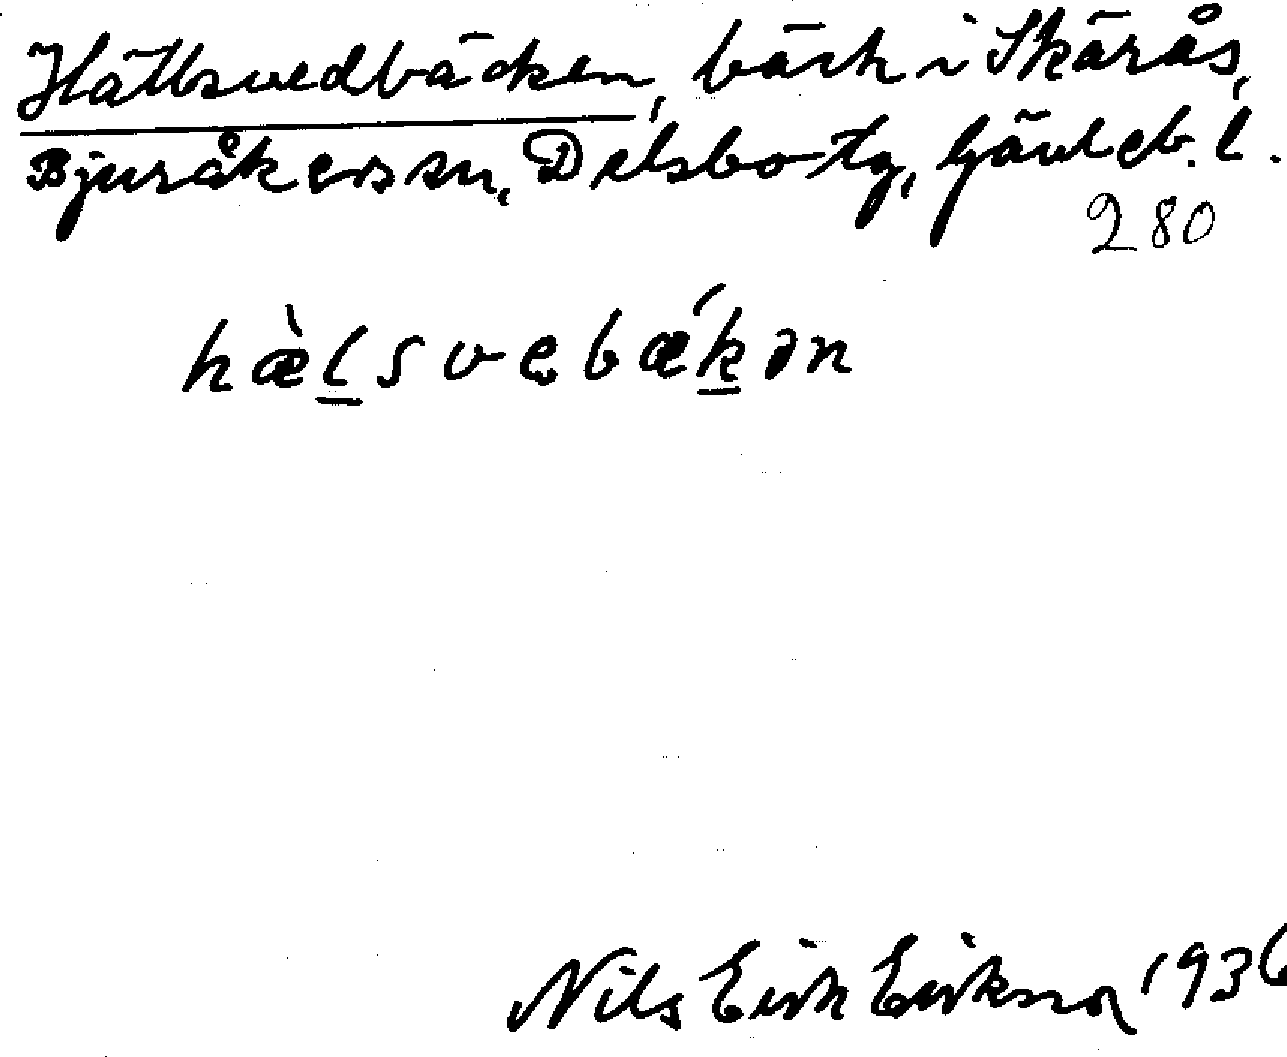 Hällsvedbäcken, bäck i Skärås,
Bjuråkers sn, Delsbo tg, Gävleb. l.
280
hæ̀l̲svebæ´k̲ən
Nils Erik Eriksson 1936